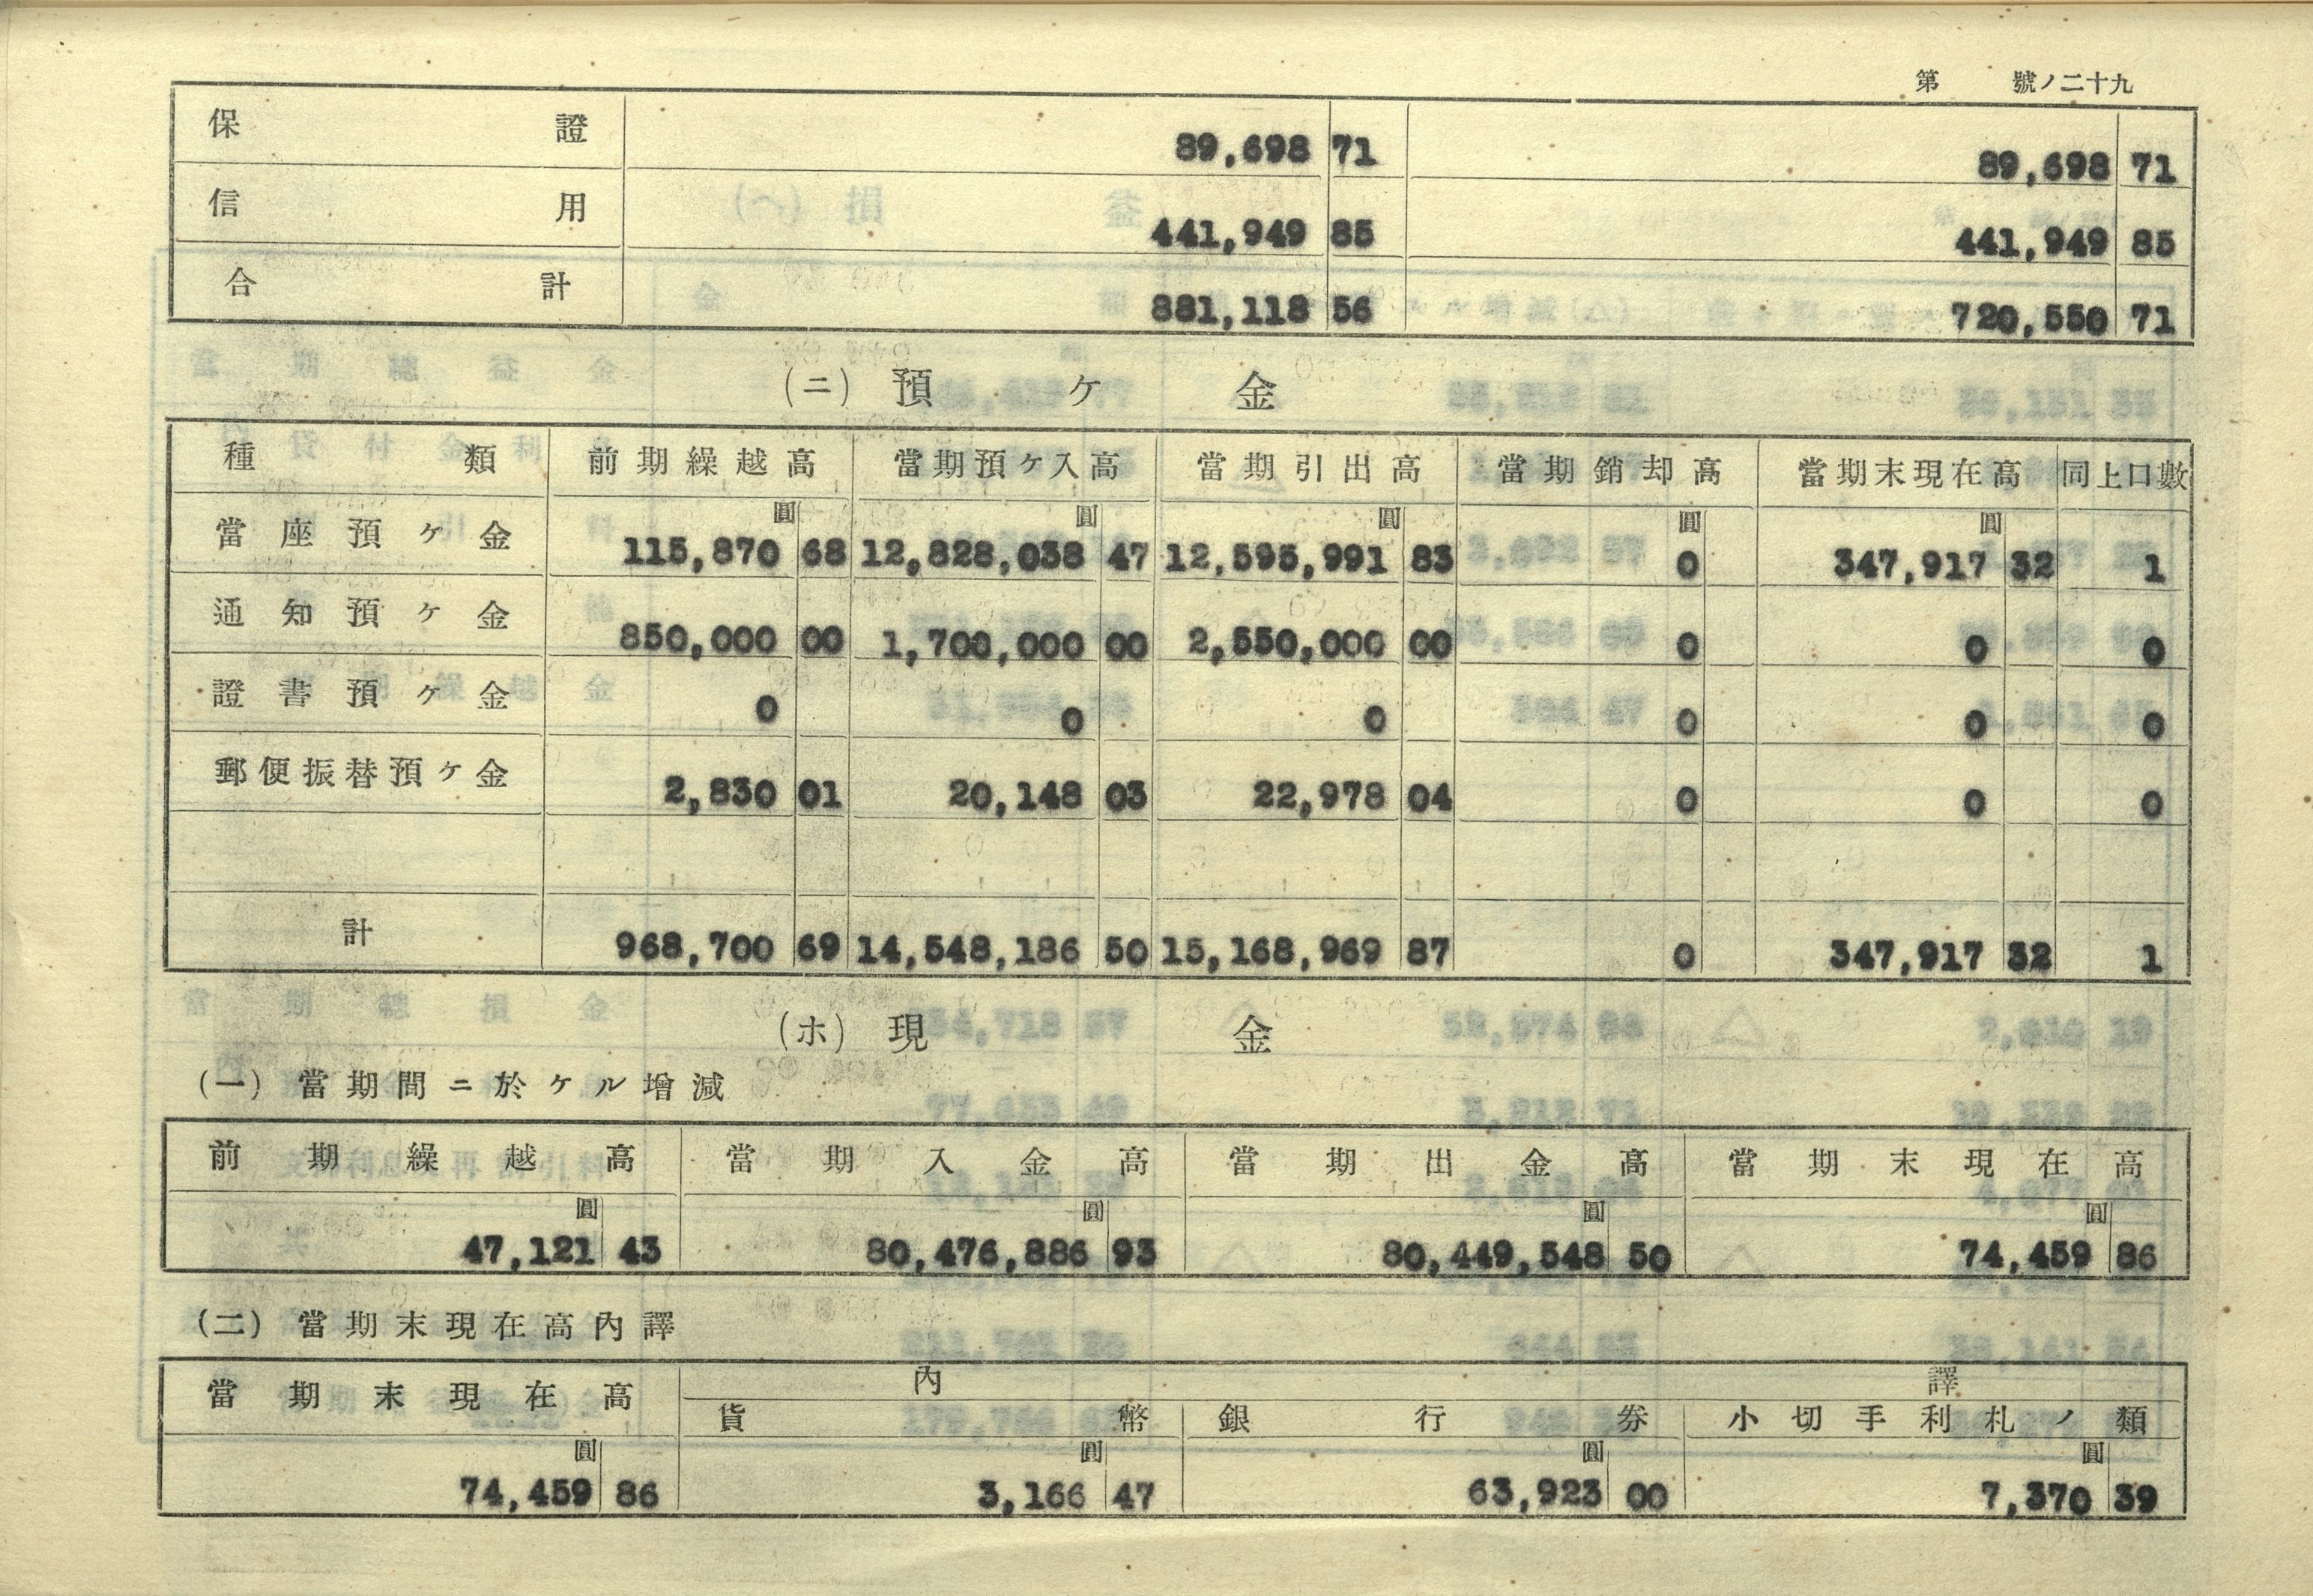 第 號ノ二十九
保證 89,698 71 89,698 71
信用 441,949 85 441,949 85
合計 881,118 56 720,550 71
(ニ) 預ケ金
種類 前期繰越高 當期預ケ入高 當期引出高 當期銷却高 當期末現在高 同上口數
圓 圓 圓 圓 圓
當座預ケ金 115,870 68 12,828,038 47 12,595,991 83 0 347,917 32 1
通知預ケ金 850,000 00 1,700,000 00 2,550,000 00 0 0 0
證書預ケ金 0 0 0 0 0 0
郵便振替預ケ金 2,830 01 20,148 03 22,978 04 0 0 0
計 968,700 69 14,548,186 50 15,168,969 87 0 347,917 32 1
(ホ) 現金
(一) 當期間ニ於ケル增減
前期繰越高 當期入金高 當期出金高 當期末現在高
圓 圓 圓 圓
47,121 43 80,476,886 93 80,449,548 50 74,459 86
(二) 當期末現在高內譯
當期末現在高 內譯
貨幣 銀行券 小切手利札ノ類
圓 圓 圓 圓
74,459 86 3,166 47 63,923 00 7,370 39